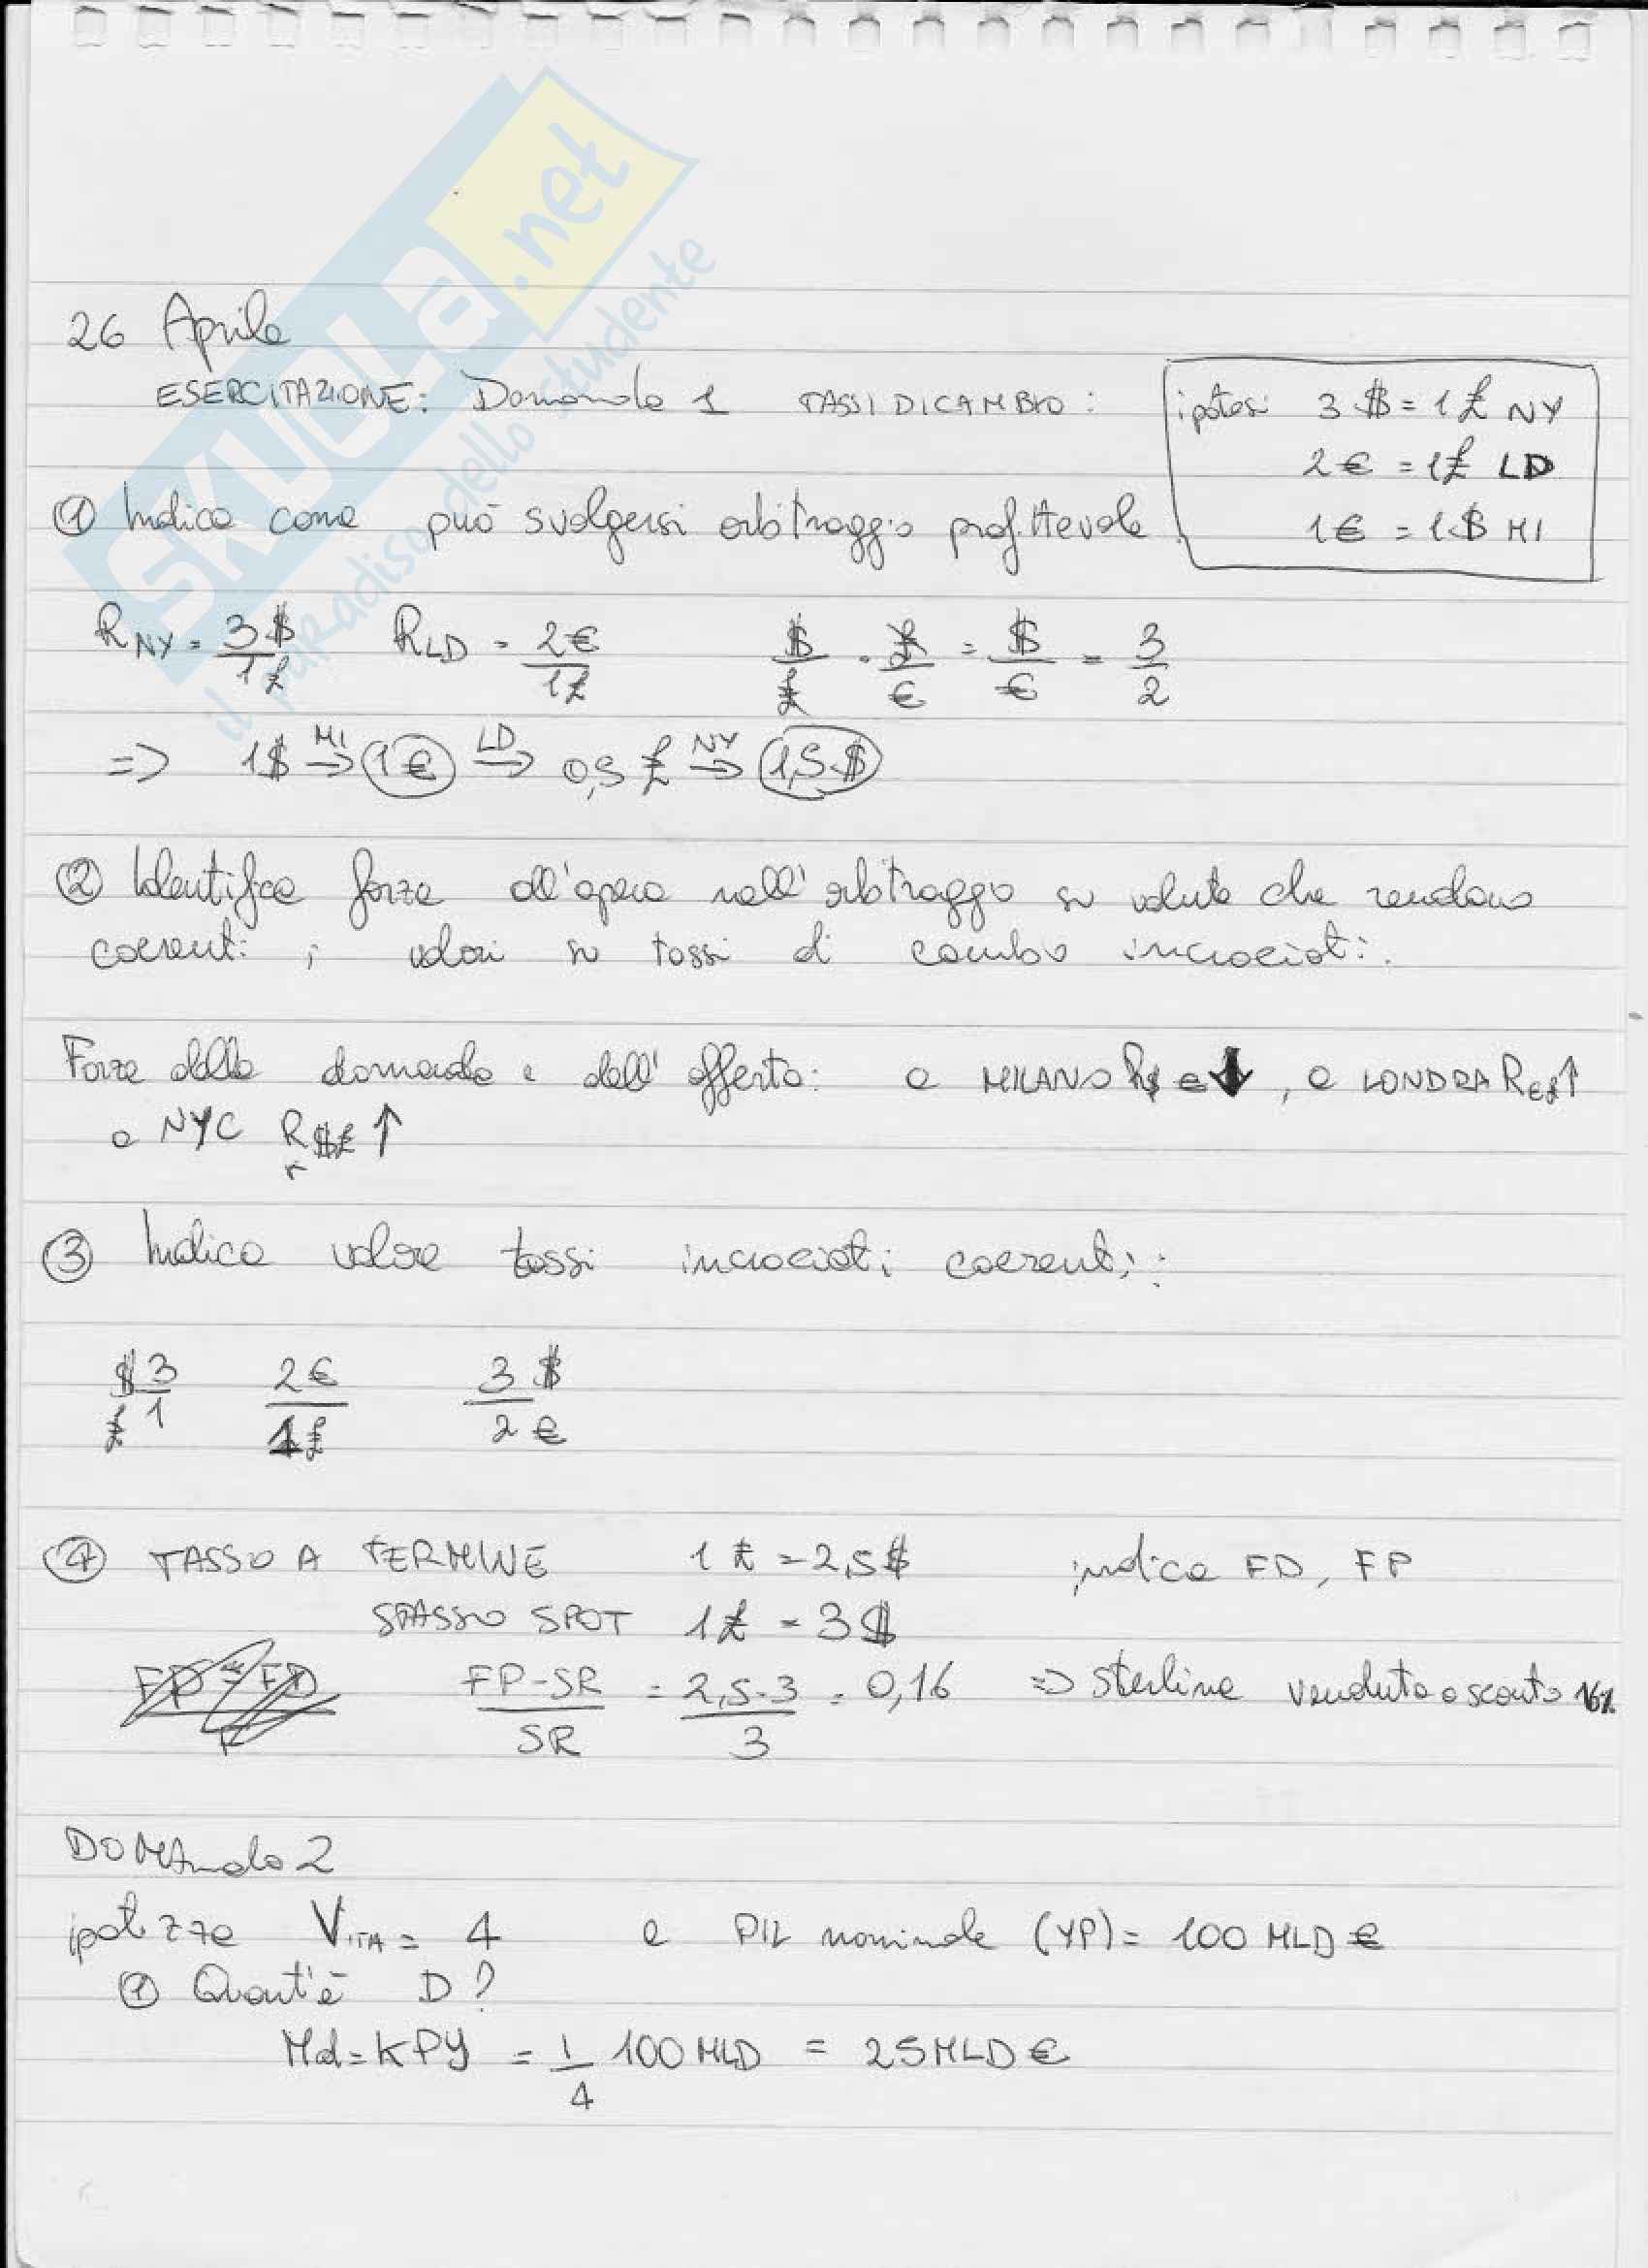 SKUOLA.net
il paradiso dello studente
26 Aprile
ESERCITAZIONE: Domanda 1 TASSI DI CAMBIO: ipotesi 3 $ = 1 £ NY
2 € = 1 £ LD
1 € = 1 $ MI
① Indica come può svolgersi arbitraggio profittevole
R NY = 3 $ / 1 £ R LD = 2 € / 1 £ $ / £ · £ / € = $ / € = 3 / 2
=> 1 $ MI → 1 € LD → 0,5 £ NY → 1,5 $
② Identifica forze all'opera nell'arbitraggio su valute che rendano
coerenti i valori su tassi di cambio incrociati.
Forze della domanda e dell'offerta: a MILANO R$€ ↓, a LONDRA R€£ ↑
a NYC R$£ ↑
③ Indica valore tassi incrociati coerenti:
$ 3 / £ 1 2 € / 1 £ 3 $ / 2 €
④ TASSO A TERMINE 1 £ = 2,5 $ indica FD, FP
TASSO SPOT 1 £ = 3 $
FP-SR / SR = 2,5-3 / 3 = 0,16 => sterlina venduta a sconto 16%
DOMAnda 2
ipotizza VITA = 4 e PIL nominale (YP) = 100 MLD €
① Quant'è D?
Md = KPY = 1 / 4 100 MLD = 25 MLD €